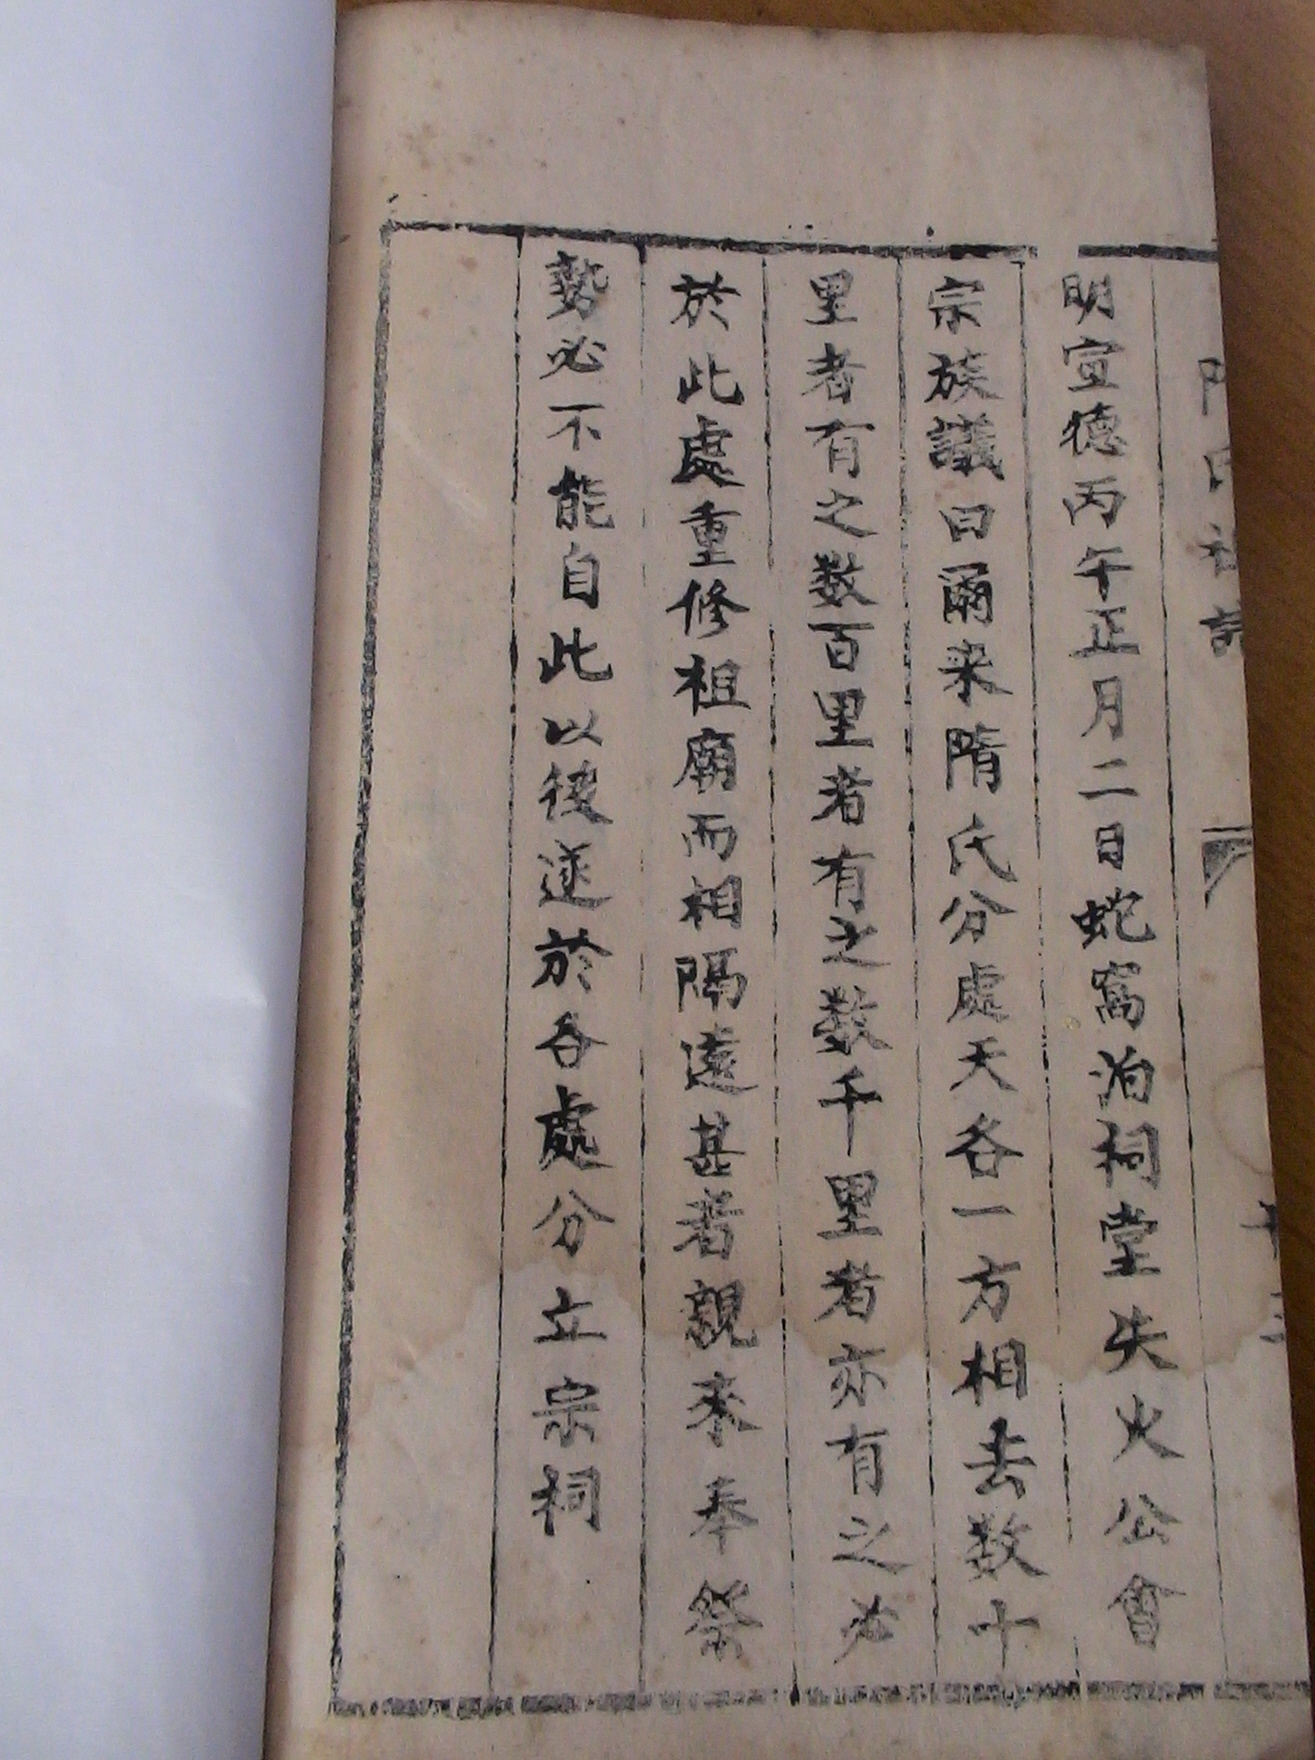 明宣德丙午正月二日蛇窩泊祠堂失火公會
宗族議曰爾来隋氏分處天各一方相去数十
里者有之数百里者有之数千里者亦有之必
於此處重修祖廟而相隔遠甚者親来奉祭
勢必不能自此以後遂於各處分立宗祠